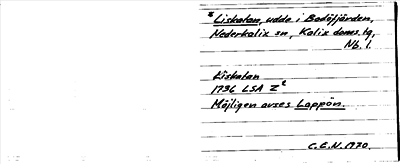 *Liskatan, udde i Bodöfjärden,
Nederkalix sn, Kalix doms. tg,
Nb. l.
Liskatan
1796 LSA Z²
Möjligen avses Lappön.
C.E.N. 1970.